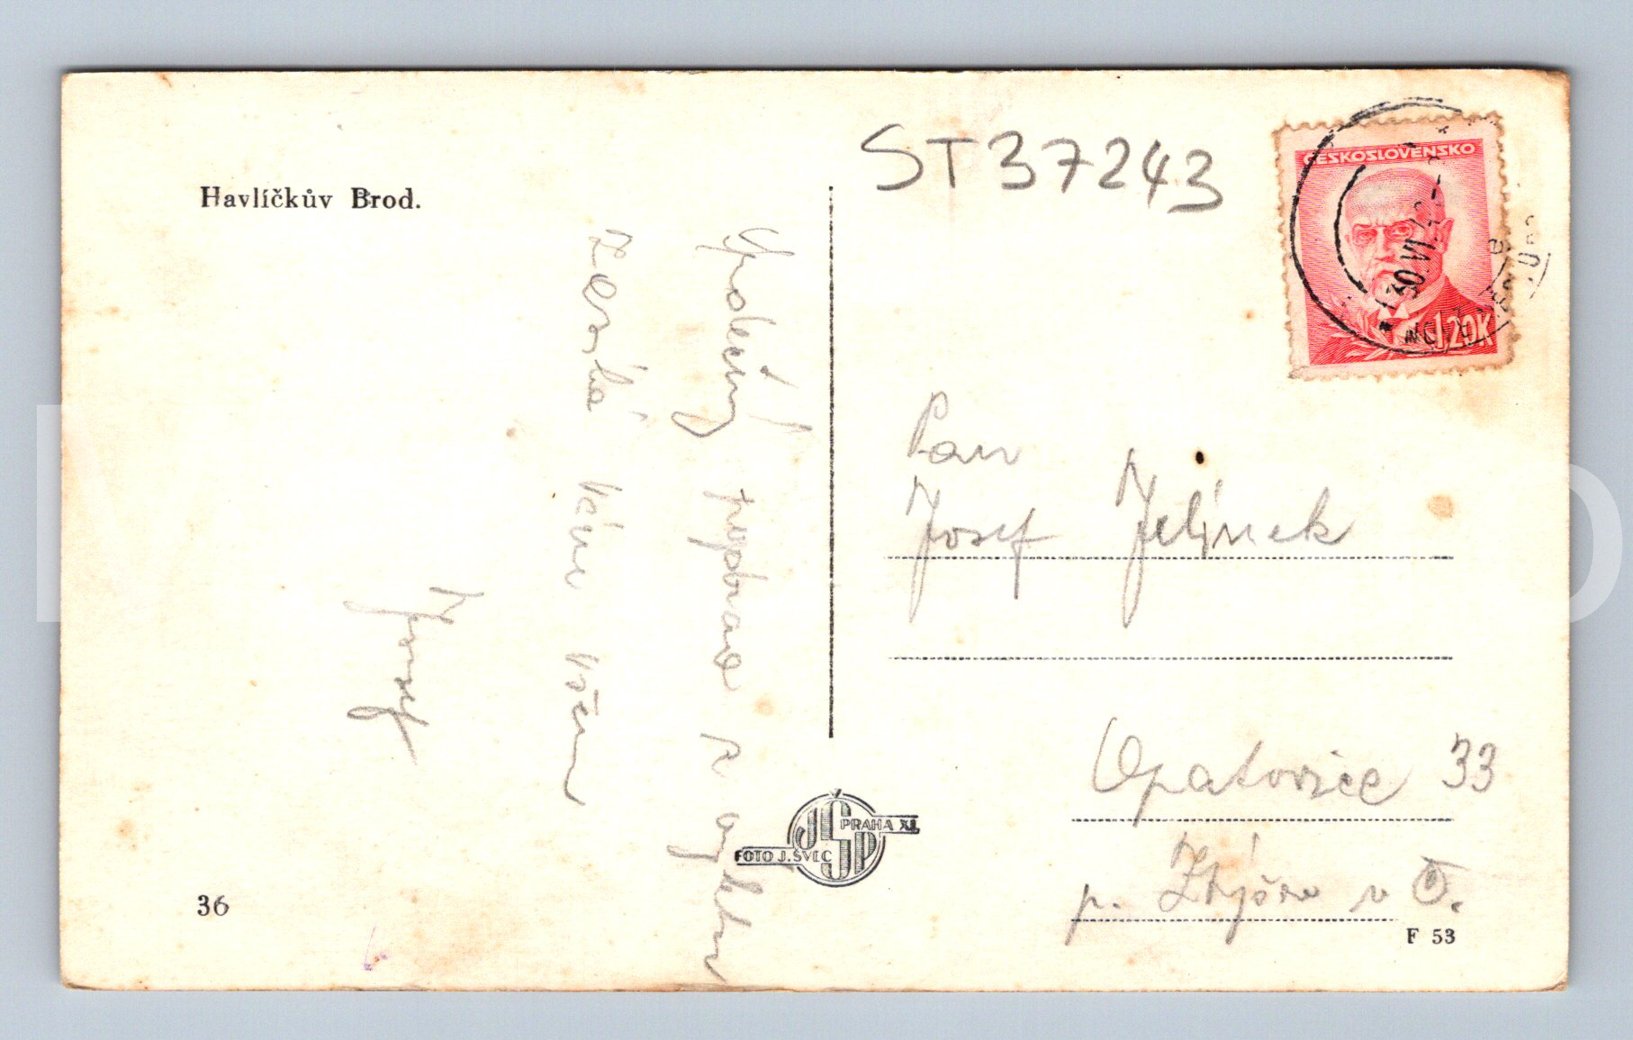 Havlíčkův Brod.
ST37243
ČESKOSLOVENSKO
1.20K
Společný pozdrav z výletu
zasílá Vám všem
Josef
Pan
Josef Jelínek
Opatovice 33
p. Zbýšov v Č.
JŠP
PRAHA XI.
FOTO J. ŠVEC
36
F 53